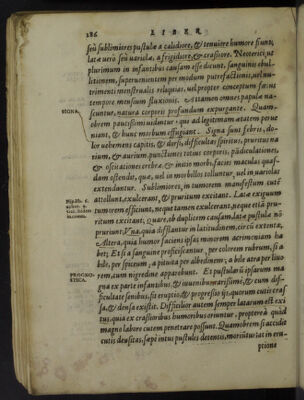 186 LIBER
seu sublimiores pustulæ a calidiore, & tenuiore humore fiunt,
latæ uerò seu uariolæ, a frigidiore, & crassiore. Neoterici, ut
plurimum in infantibus causam esse dicunt, sanguinis ebul-
litionem, superuenientem per modum putrefactionis, uel nu-
trimenti menstrualis reliquias, uel propter conceptum factum
tempore mensium fluxionis. Attamen omnes papulæ na-
scuntur, natura corporis profundum expurgante. Quam-
SIGNA.
obrem paucissimi uidentur: qui ad legitimam ætatem perue
niant, & hunc morbum effugiant. Signa sunt febris, do-
lor uehemens capitis, & dorsi, difficultas spiritus, pruritus na
rium, & aurium, punctiones totius corporis, pādiculationes,
& oscitationes crebræ, & initio morbi, faciei maculas quas-
dam ostendit, quæ, uel in morbillos tolluntur, uel in uariolas
extenduntur. Sublimiores, in tumorem manifestum cutē
attollunt, exulcerant, & pruritum excitant. Latæ exiguum
tumorem efficiunt, neque tamen exulcerant, neque etiā pru-
ritum excitant, Quare, ob duplicem causam, latæ pustulæ nō
pruriunt: Vna, quia difflantur in latitudinem, circū extenta,
Altera, quia humor faciens ipsas minorem acrimoniam ha
bet; Et si a sanguine proficiscantur, per colorem rubrum, si a
bile, per spiceum, a pituita per albedinem, a bile atra per liuo-
PROGNO-
STICA.
rem, tum nigredine apparebunt. Et pustularū ipsarum ma
gna ex parte infantibus, & iuuenibus marissime, & cum dif-
ficultate senibus, fit eruptio, & progressio ijs, quorum cutis cras
sa, & densa existit. Difficilior autem semper latarum est exi
tus, quia ex crassioribus humoribus oriuntur, propterea quòd
magno labore cutem penetrare possunt. Quamobrem si accida
cutis densitas, sæpè intus pustulis detentis, moriūtur: iat in eru
ptione